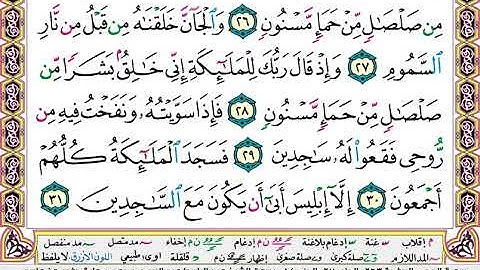 مِن صَلْصَالٍ مِّنْ حَمَإٍ مَّسْنُونٍ ٢٦ وَالْجَآنَّ خَلَقْنَاهُ مِن قَبْلُ مِن نَّارِ
السَّمُومِ ٢٧ وَإِذْ قَالَ رَبُّكَ لِلْمَلَائِكَةِ إِنِّي خَالِقٌ بَشَرًا مِّن
صَلْصَالٍ مِّنْ حَمَإٍ مَّسْنُونٍ ٢٨ فَإِذَا سَوَّيْتُهُ وَنَفَخْتُ فِيهِ مِن
رُّوحِي فَقَعُوا لَهُ سَاجِدِينَ ٢٩ فَسَجَدَ الْمَلَائِكَةُ كُلُّهُمْ
أَجْمَعُونَ ٣٠ إِلَّا إِبْلِيسَ أَبَىٰ أَن يَكُونَ مَعَ السَّاجِدِينَ ٣١
م إقلاب غنة إدغام بلاغنة إدغام إخفاء مد متصل مد منفصل
المد اللازم صلة كبرى صلة صغرى قلقلة طبيعي اللون الأزرق لا يلفظ